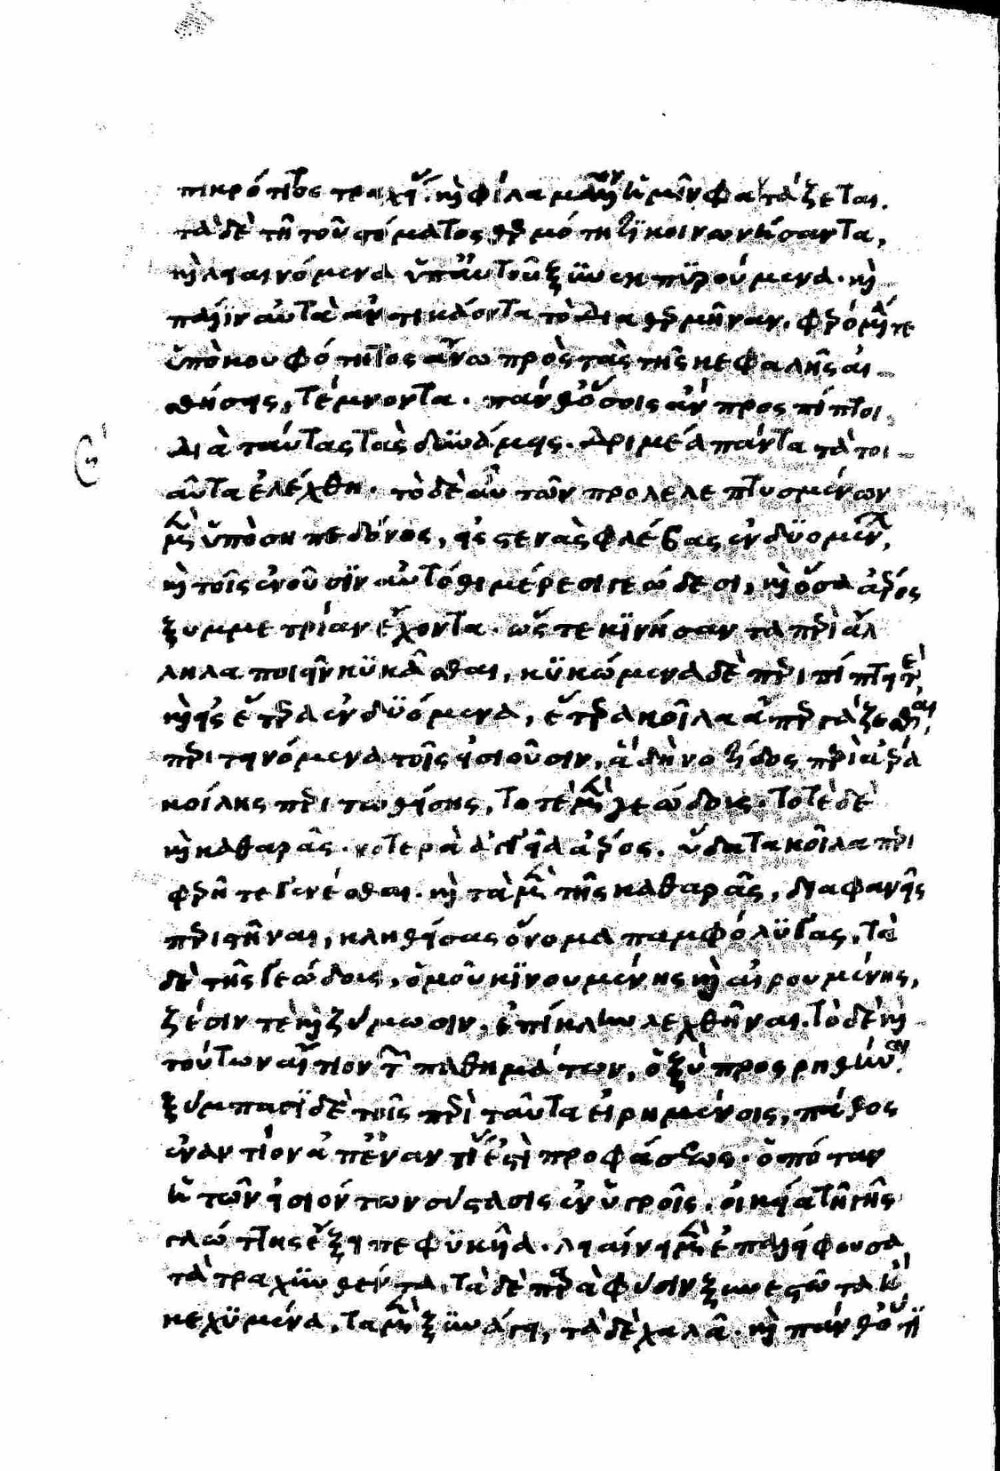 πικρότητος τραχείας καὶ φίλα μᾶλλον ἡμῖν φαντάζεται.
τὰ δὲ τῇ τοῦ στόματος θερμότητι κοινωνήσαντα,
καὶ λεαινόμενα ὑπ' αὐτοῦ ξυνεκπυρούμενα· καὶ
πάλιν αὐτὰ ἀντικάοντα τὸ διαθερμῆναν, φερόμενά τε
ὑπὸ κουφότητος ἄνω πρὸς τὰς τῆς κεφαλῆς αἰ-
σθήσεις, τέμνοντα. πάνθ' ὁπόσοις ἂν προσπίπτοι
διὰ ταύτας τὰς δυνάμεις. δριμέα πάντα τὰ τοι-
αῦτα ἐλέχθη. τὸ δὲ αὖ τῶν προλελεπτυσμένων
μὲν ὑπὸ σηπεδόνος, εἰς στενὰς φλέβας ἐνδυομένων,
καὶ τοῖς ἐνοῦσιν αὐτόθι μέρεσι γεώδεσι, καὶ ὅσα ἀέρος
ξυμμετρίαν ἔχοντα. ὥστε κινήσαντα περὶ ἄλ
ληλα ποιεῖν κυκᾶσθαι, κυκώμενα δὲ περιπίπτειν τε,
καὶ εἰς ἕτερα ἐνδυόμενα, ἕτερα κοῖλα ἀπεργάζεσθαι,
περιτεινόμενα τοῖς εἰσιοῦσιν, ἃ δὴ νοτίδος περὶ ἀέρα
κοίλης περιταθείσης, τοτὲ μὲν γεώδους. τοτὲ δὲ
καὶ καθαρᾶς. νοτερὰ ἀγγεῖα ἀέρος. ὕδατα κοῖλα περι
φερῆ τε γενέσθαι. καὶ τὰ μὲν τῆς καθαρᾶς, διαφανεῖς
περιστῆναι, κληθείσας ὄνομα πομφόλυγας, τὰ
δὲ τῆς γεώδους, ὁμοῦ κινουμένης καὶ αἰρουμένης,
ζέσιν τε καὶ ζύμωσιν, ἐπίκλην λεχθῆναι. τὸ δὲ καὶ
τούτων αἴτιον τῶν παθημάτων, ὀξὺ προσρηθῆναι.
ξύμπασι δὲ τοῖς περὶ ταῦτα εἰρημένοις, πάθος
ἐναντίον ἀπ' ἐναντίας ἐστὶ προφάσεως. ὁπόταν
ἡ τῶν εἰσιόντων σύστασις ἐν ὑγροῖς, οἰκεία τῇ τῆς
γλώττης ἕξει πεφυκεῖα. λεαίνει μὲν ἐπαλείφουσα
τὰ τραχυνθέντα, τὰ δὲ παρὰ φύσιν ξυνεστῶτα ἢ
κεχυμένα, τὰ μὲν ξυνάγει, τὰ δὲ χαλᾷ. καὶ πάνθ' ὅτι